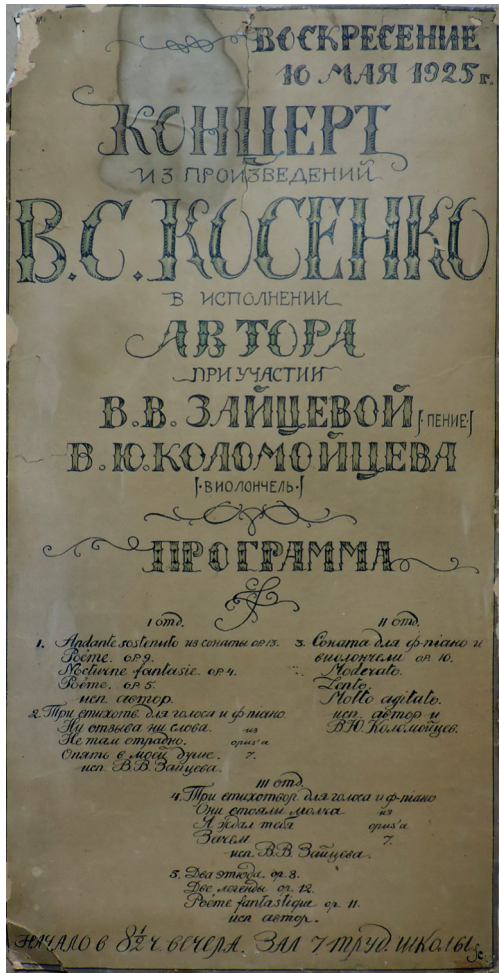 ВОСКРЕСЕНИЕ
10 МАЯ 1925 г.
КОНЦЕРТ
ИЗ ПРОИЗВЕДЕНИЙ
В.С. КОСЕНКО
В ИСПОЛНЕНИИ
АВТОРА
ПРИ УЧАСТИИ
В.В. ЗАЙЦЕВОЙ [·ПЕНИЕ·]
В.Ю. КОЛОМОЙЦЕВА
[·ВИОЛОНЧЕЛЬ·]
ПРОГРАММА
I отд.
1. Andante sostenuto из сонаты ор.13.
Poéme. ор 9.
Nocturne fantasie. ор 4.
Poéme. ор 5.
исп. автор.
2. Три стихотв. для голоса и ф-пiано
Ни отзыва ни слова из
Не там отрадно. opus'a
Опять в моей душе. 7.
исп. В.В. Зайцева.
II отд.
3. Соната для ф-пiано и
виолончели ор 10.
Moderato.
Lento.
Molto agitato.
исп. автор и
В.Ю. Коломойцев.
III отд.
4. Три стихотвор. для голоса и ф-пiано
Они стояли молча из
Я ждал тебя opus'a
Зачем 7.
исп. В.В. Зайцева.
5. Два этюда. ор. 8.
Две легенды ор. 12.
Poéme fantastique ор. 11.
исп автор.
НАЧАЛО В 8 1/2 Ч. ВЕЧЕРА. ЗАЛ 7 ТРУД. ШКОЛЫ